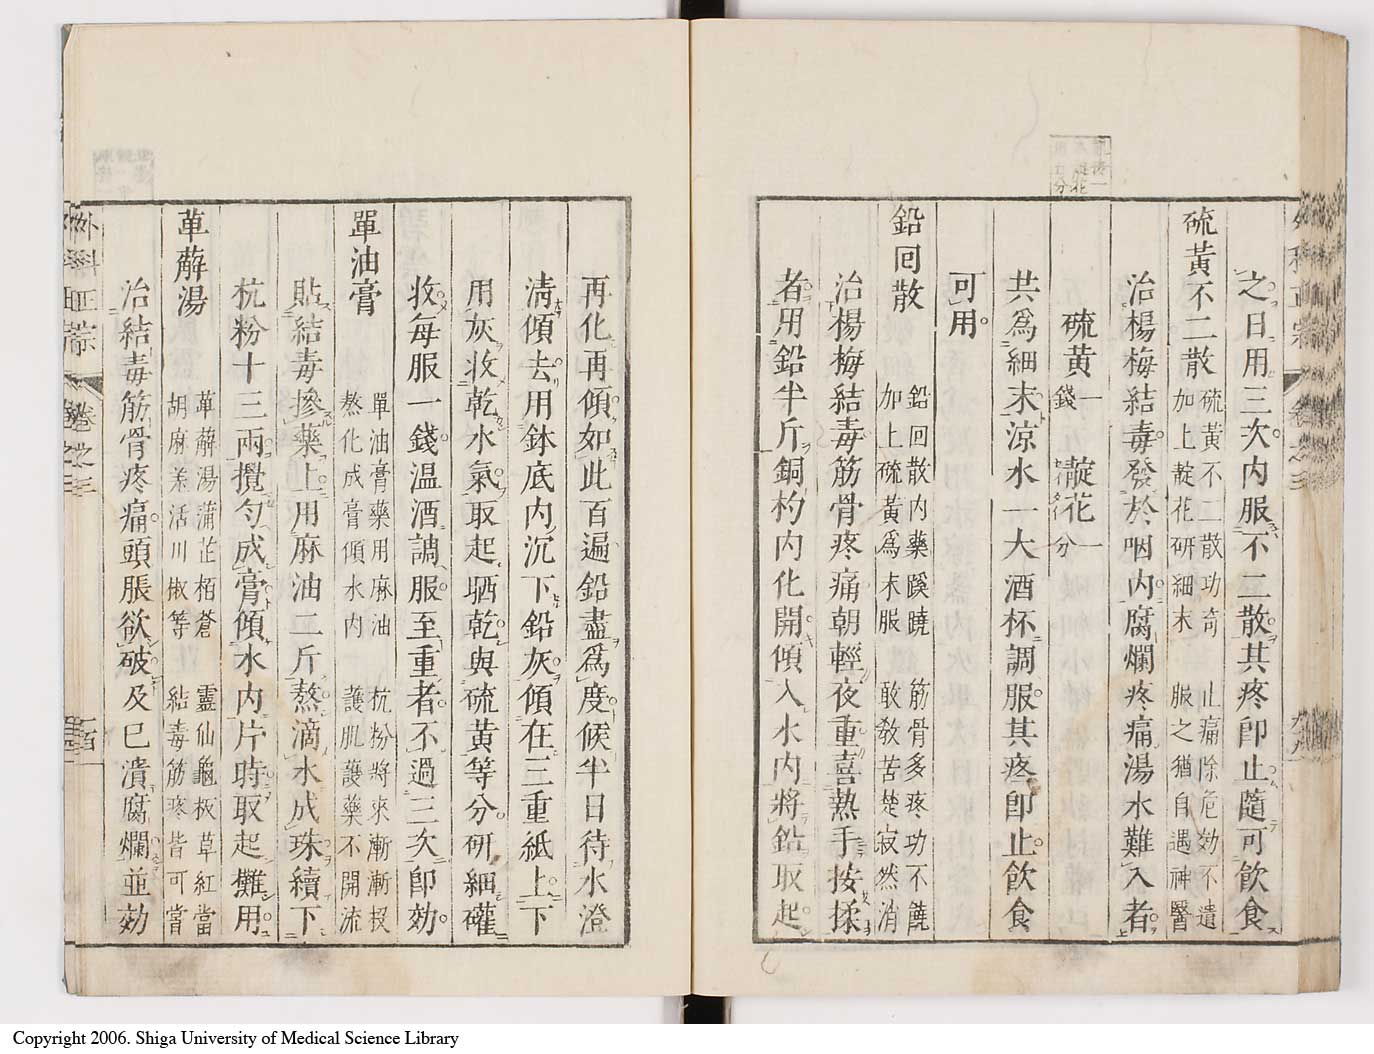 之日用三次內服不二散其疼卽止隨可飲食
硫黃不二散
硫黃不二散功奇 止痛除危効不遺
加上靛花研細末 服之猶自遇神醫
治楊梅結毒發於咽內腐爛疼痛湯水難入者
硫黃一錢 靛花一分
共爲細末涼水一大酒杯調服其疼卽止飲食
可用
鉛回散
鉛回散內藥蹊曉 筋骨多疼功不饒
加上硫黃爲末服 敢教苦楚寂然消
治楊梅結毒筋骨疼痛朝輕夜重喜熱手按揉
者用鉛半斤銅杓內化開傾入水內將鉛取起
再化再傾如此百遍鉛盡爲度候半日待水澄
清傾去用鉢底內沉下鉛灰傾在三重紙上下
用灰收乾水氣取起晒乾與硫黃等分研細礶
收每服一錢溫酒調服至重者不過三次卽効
單油膏
單油膏藥用麻油 杭粉將來漸漸投
熬化成膏傾水內 護肌護藥不開流
貼結毒摻藥上用麻油二斤熬滴水成珠續下
杭粉十三兩攪勻成膏傾水內片時取起攤用
萆薢湯
萆薢湯蒲芷栢蒼 靈仙龜板草紅當
胡麻羗活川椒等 結毒筋疼皆可嘗
治結毒筋骨疼痛頭脹欲破及已潰腐爛並効
外科正宗 卷之三
Copyright 2006. Shiga University of Medical Science Library